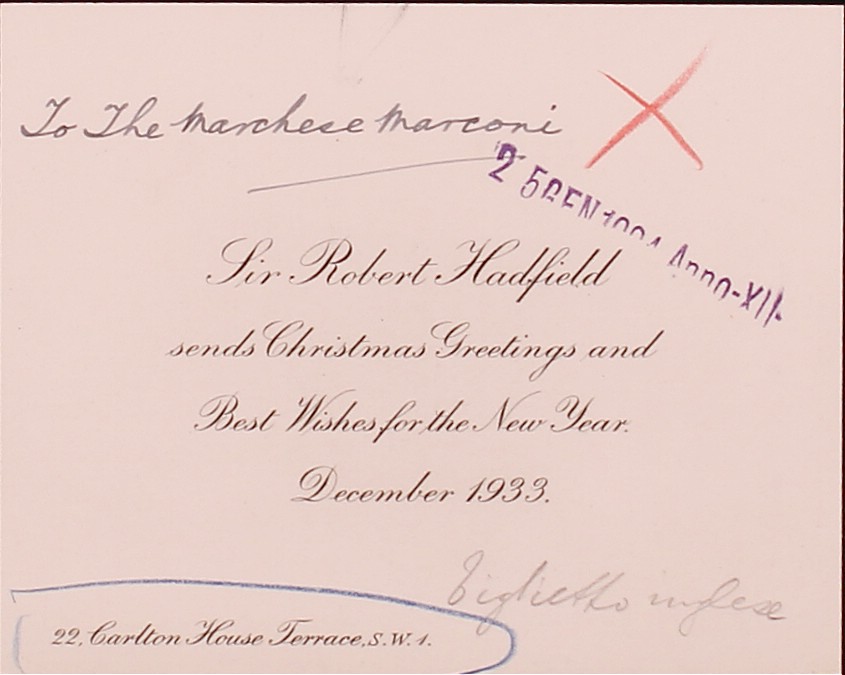 To The Marchese Marconi
25 GEN 1934 Anno-XII
Sir Robert Hadfield
sends Christmas Greetings and
Best Wishes for the New Year.
December 1933.
Biglietto inglese
22, Carlton House Terrace, S.W.1.